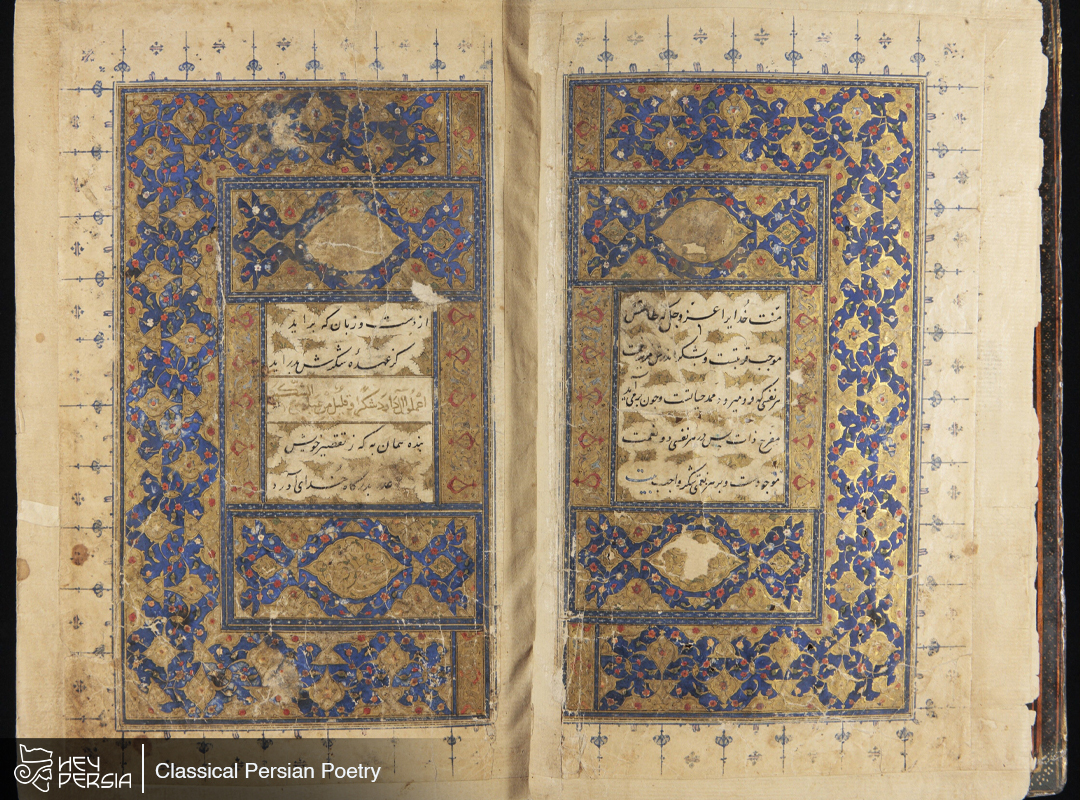 منت خدایرا عزوجل که طاعتش
موجب قربتست و بشکر اندرش مزید نعمت
هر نفسی که فرو میرود ممد حیاتست و چون برمی آید
مفرح ذات پس در هر نفسی دو نعمت
موجودست و بر هر نعمتی شکری واجب بیت
از دست و زبان که برآید
کز عهدهٔ شکرش بدر آید
اعملوا آل داود شکرا و قلیل من عبادی الشکور
بنده همان به که ز تقصیر خویش
عذر بدرگاه خدای آورد
HEY
PERSIA
Classical Persian Poetry